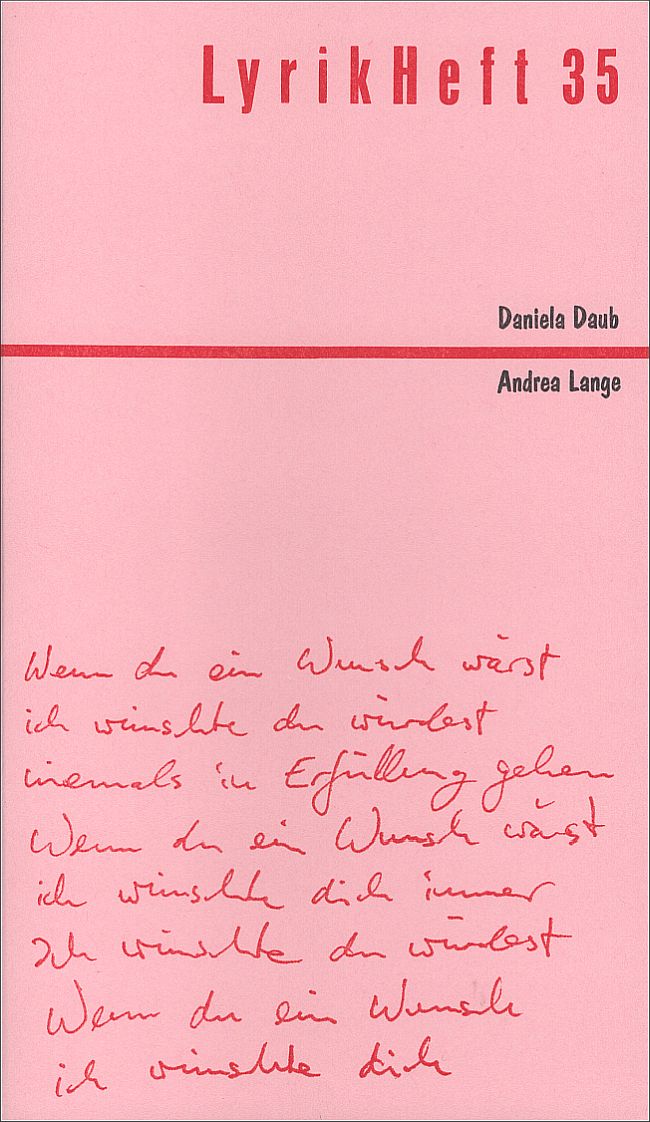 LyrikHeft 35
Daniela Daub
Andrea Lange
Wenn du ein Wunsch wärst
ich wünschte du würdest
niemals in Erfüllung gehen
Wenn du ein Wunsch wärst
ich wünschte dich immer
Ich wünschte du würdest
Wenn du ein Wunsch
ich wünschte dich